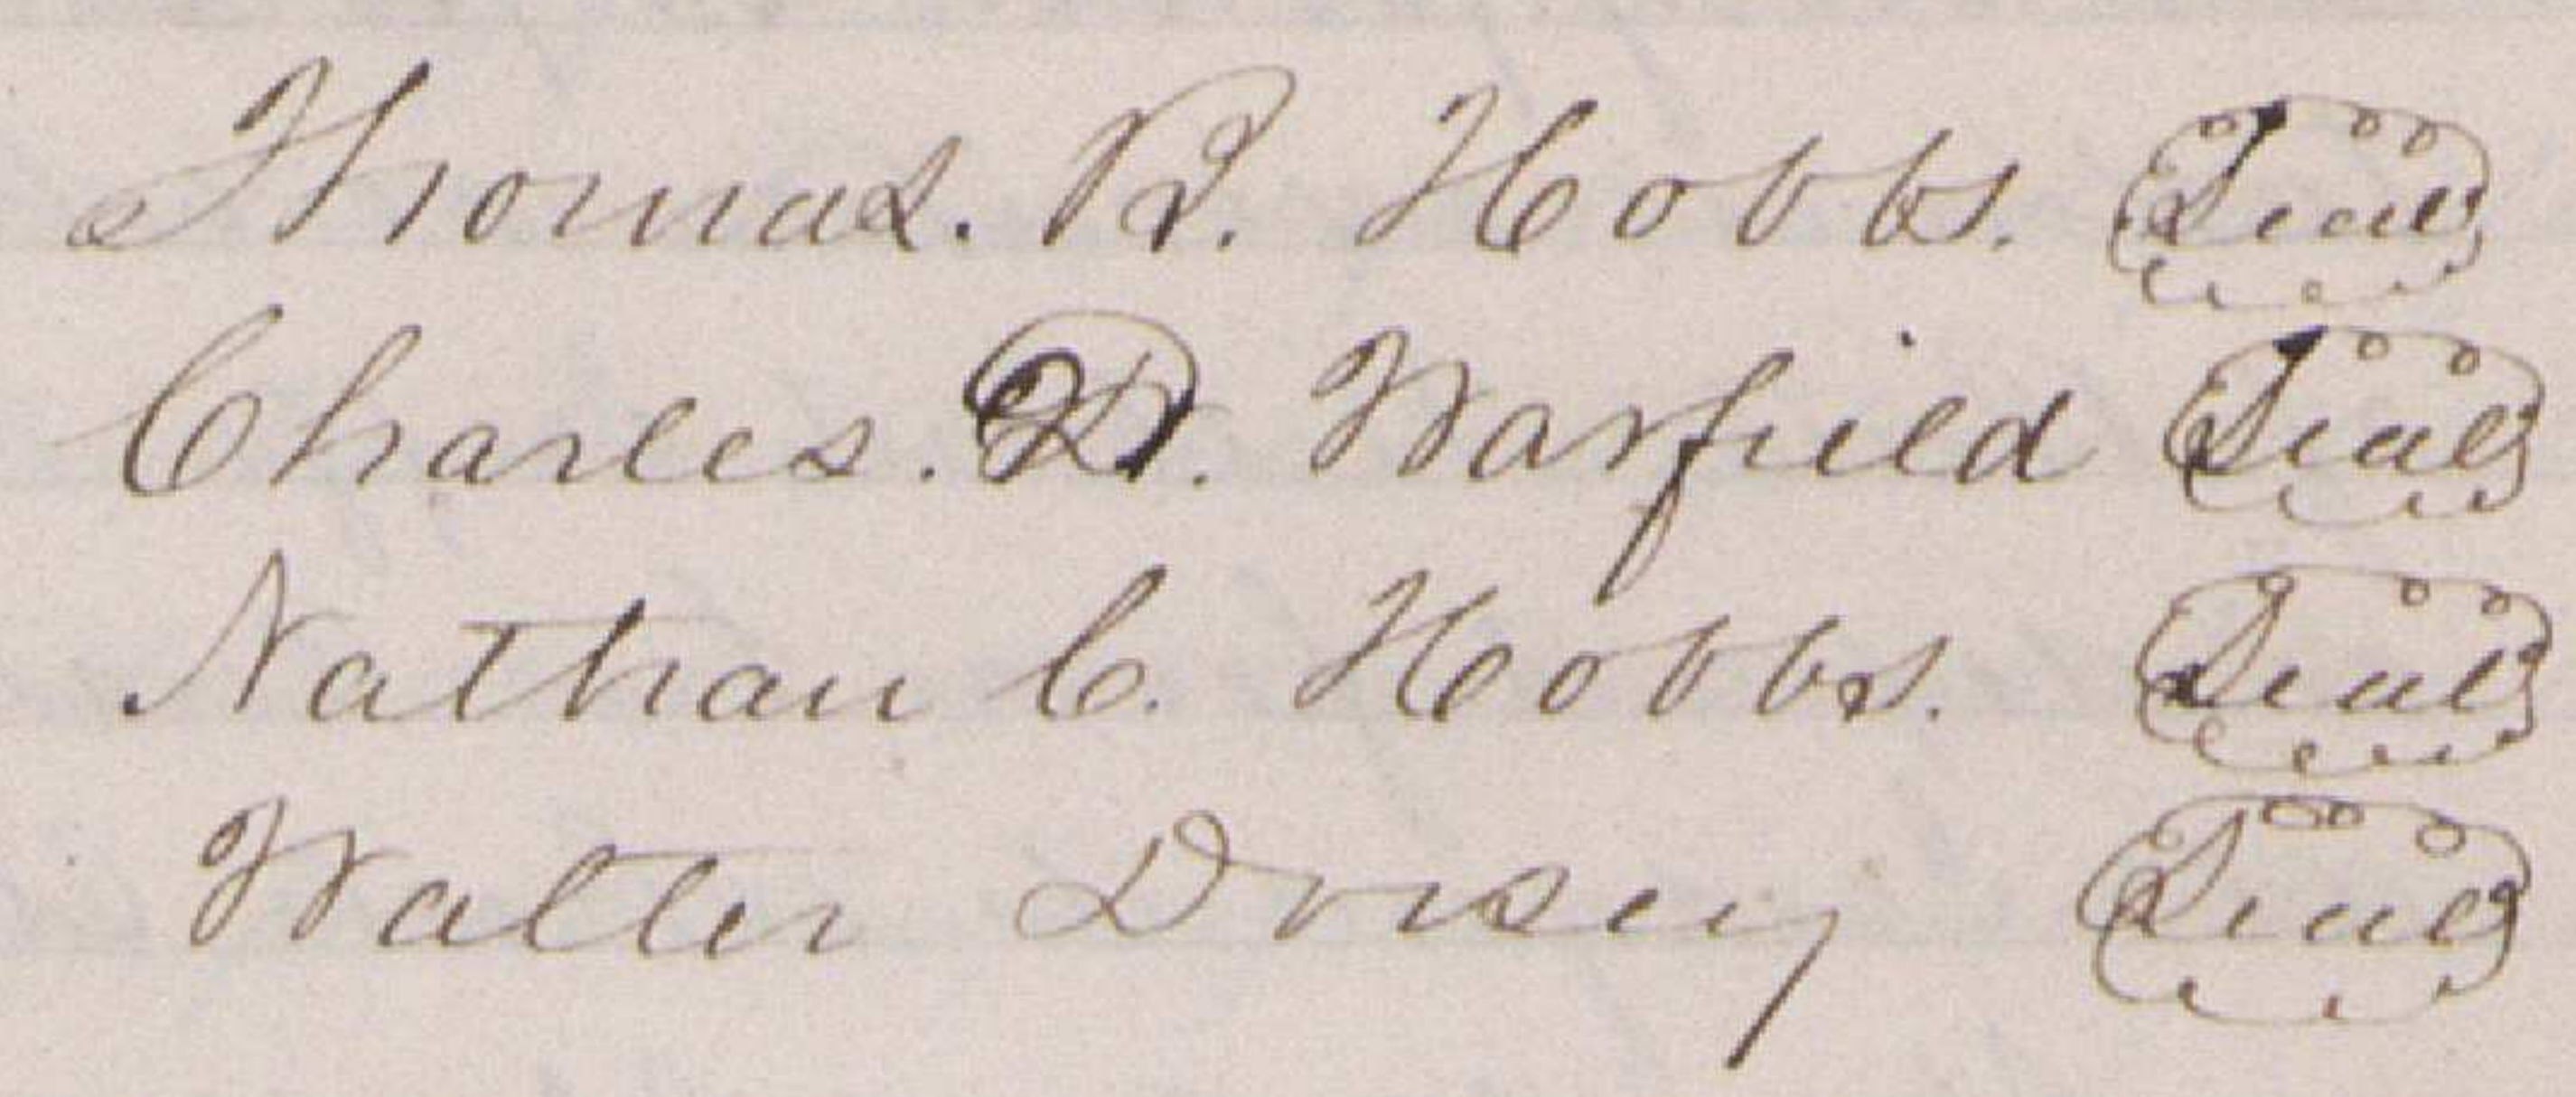 Thomas. B. Hobbs. Seal
Charles. D. Warfield Seal
Nathan C. Hobbs. Seal
Walter Dorsey Seal